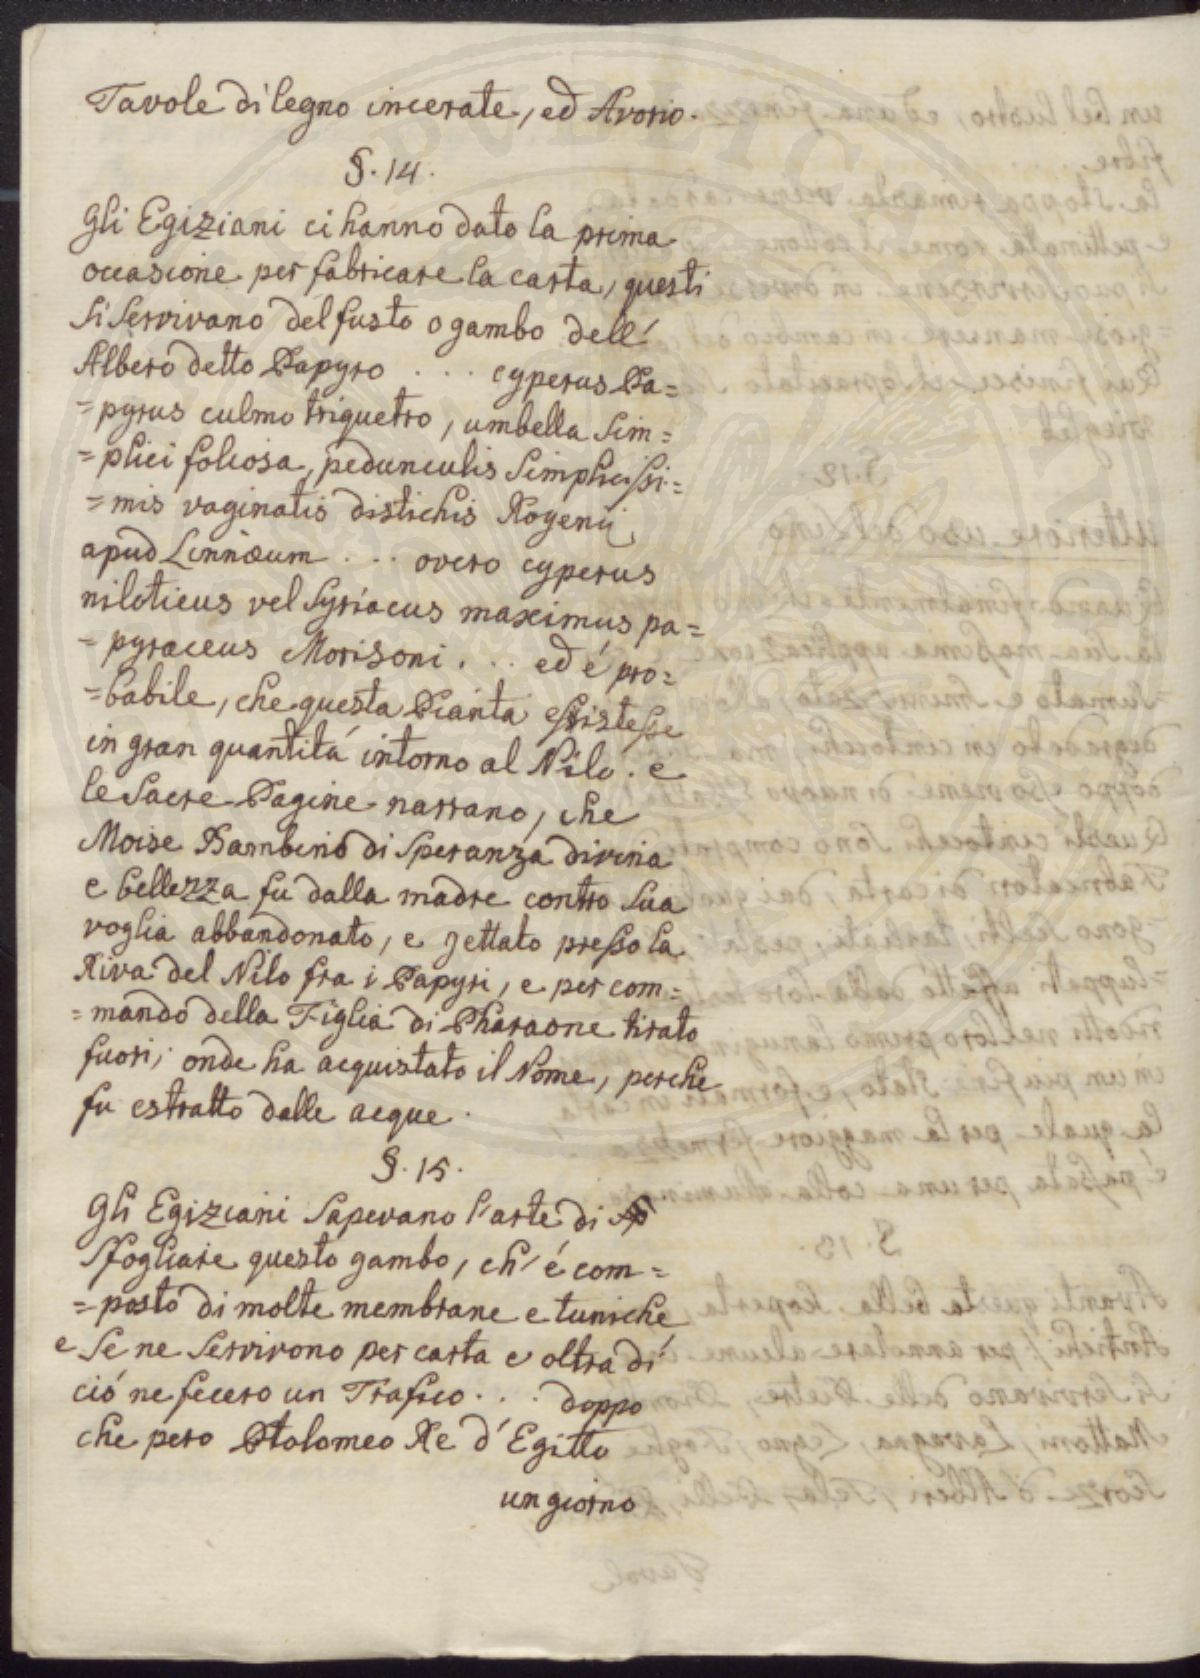 Tavole di legno incerate, ed Avorio.
§. 14.
Gli Egiziani ci hanno dato la prima
occasione per fabricare la carta, questi
si servivano del fusto o gambo dell'
Albero detto Papyro . . . cyperus Pa=
=pyrus culmo triquetro, umbella sim=
=plici foliosa, pedunculis simplicissi=
=mis vaginatis distichis Royenii
apud Linnæum . . . overo cyperus
niloticus vel Syriacus maximus pa=
=pyraceus Morisoni . . . ed é pro=
=babile, che questa Pianta essistesse
in gran quantitá intorno al Nilo. e
le Sacre Pagine narrano, che
Moise Bambino di Speranza divina
e bellezza fu dalla madre contro sua
voglia abbandonato, e gettato presso la
Riva del Nilo fra i Papyri, e per com=
=mando della Figlia di Pharaone tirato
fuori; onde ha acquistato il Nome, perche
fu estratto dalle acque.
§. 15.
Gli Egiziani sapevano l'arte di
sfogliare questo gambo, ch' é com=
=posto di molte membrane e tuniche
e se ne servirono per carta e oltra di
ció ne fecero un Trafico . . . doppo
che pero Ptolomeo Re d' Egitto
un giorno